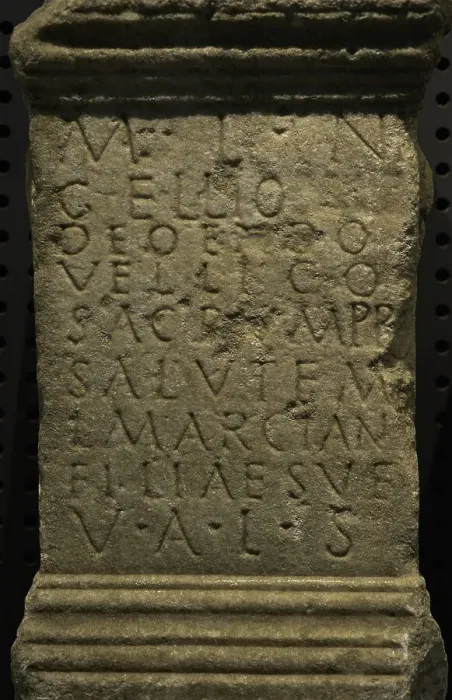 M · L · N
GELLIO
DEO ENDO
VELLICO
SACRVM PR
SALVTEM
MARCIAN
FILIAE SVE
V · A · L · S